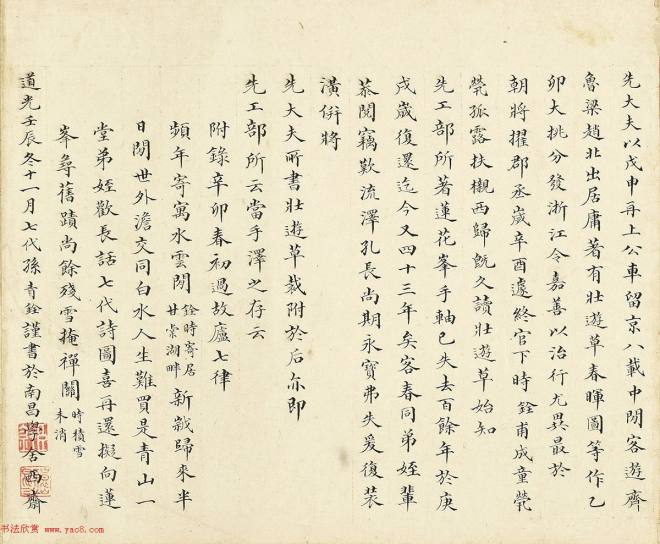 先大夫以戊申再上公車留京八載中閒客遊齊
魯梁趙北出居庸著有壯遊草春暉圖等作乙
卯大挑分發浙江令嘉善以治行尤異最於
朝將擢郡丞歲辛酉遽終官下時銓甫成童煢
煢孤露扶櫬西歸旣久讀壯遊草始知
先工部所著蓮花峯手軸已失去百餘年於庚
戌歲復還迄今又四十三年矣客春同弟姪輩
恭閱竊歎流澤孔長尚期永寶弗失爰復裝
潢併將
先大夫所書壯遊草裁附於后亦即
先工部所云當手澤之存云
附錄辛卯春初過故廬七律
頻年寄寓水雲閒 銓時寄居甘棠湖畔 新歲歸來半
日閒世外澹交同白水人生難買是青山一
堂弟姪歡長話七代詩圖喜再還擬向蓮
峯尋舊蹟尚餘殘雪掩禪關 時積雪未消
道光壬辰冬十一月七代孫青銓謹書於南昌學舍西齋
书法欣赏 www.yac8.com